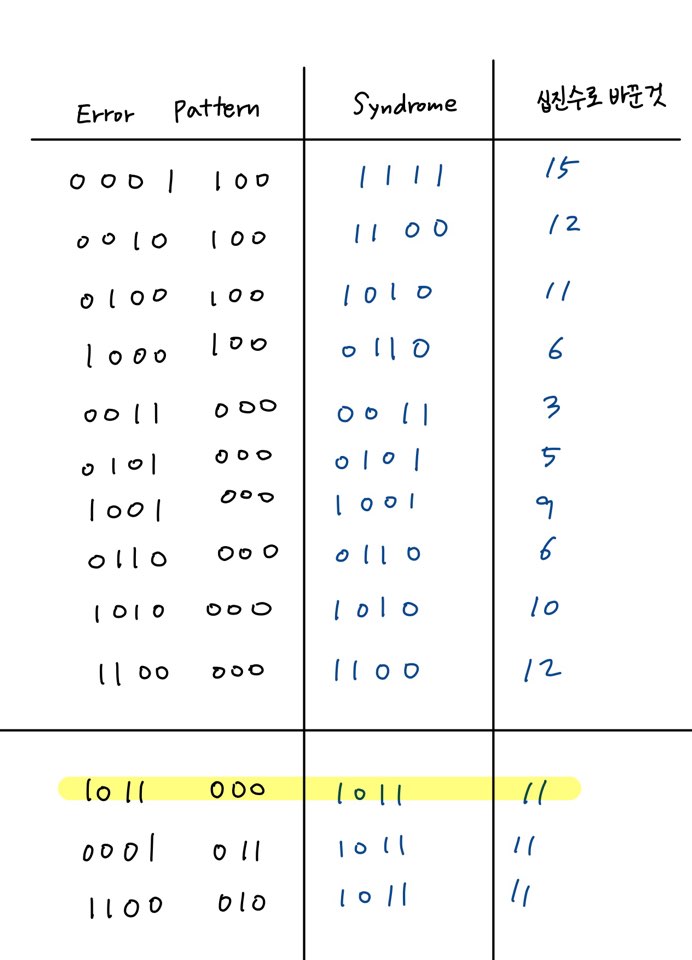 Error Pattern Syndrome 십진수로 바꾼것
0001 100 1111 15
0010 100 1100 12
0100 100 1010 11
1000 100 0110 6
0011 000 0011 3
0101 000 0101 5
1001 000 1001 9
0110 000 0110 6
1010 000 1010 10
1100 000 1100 12
1011 000 1011 11
0001 011 1011 11
1100 010 1011 11